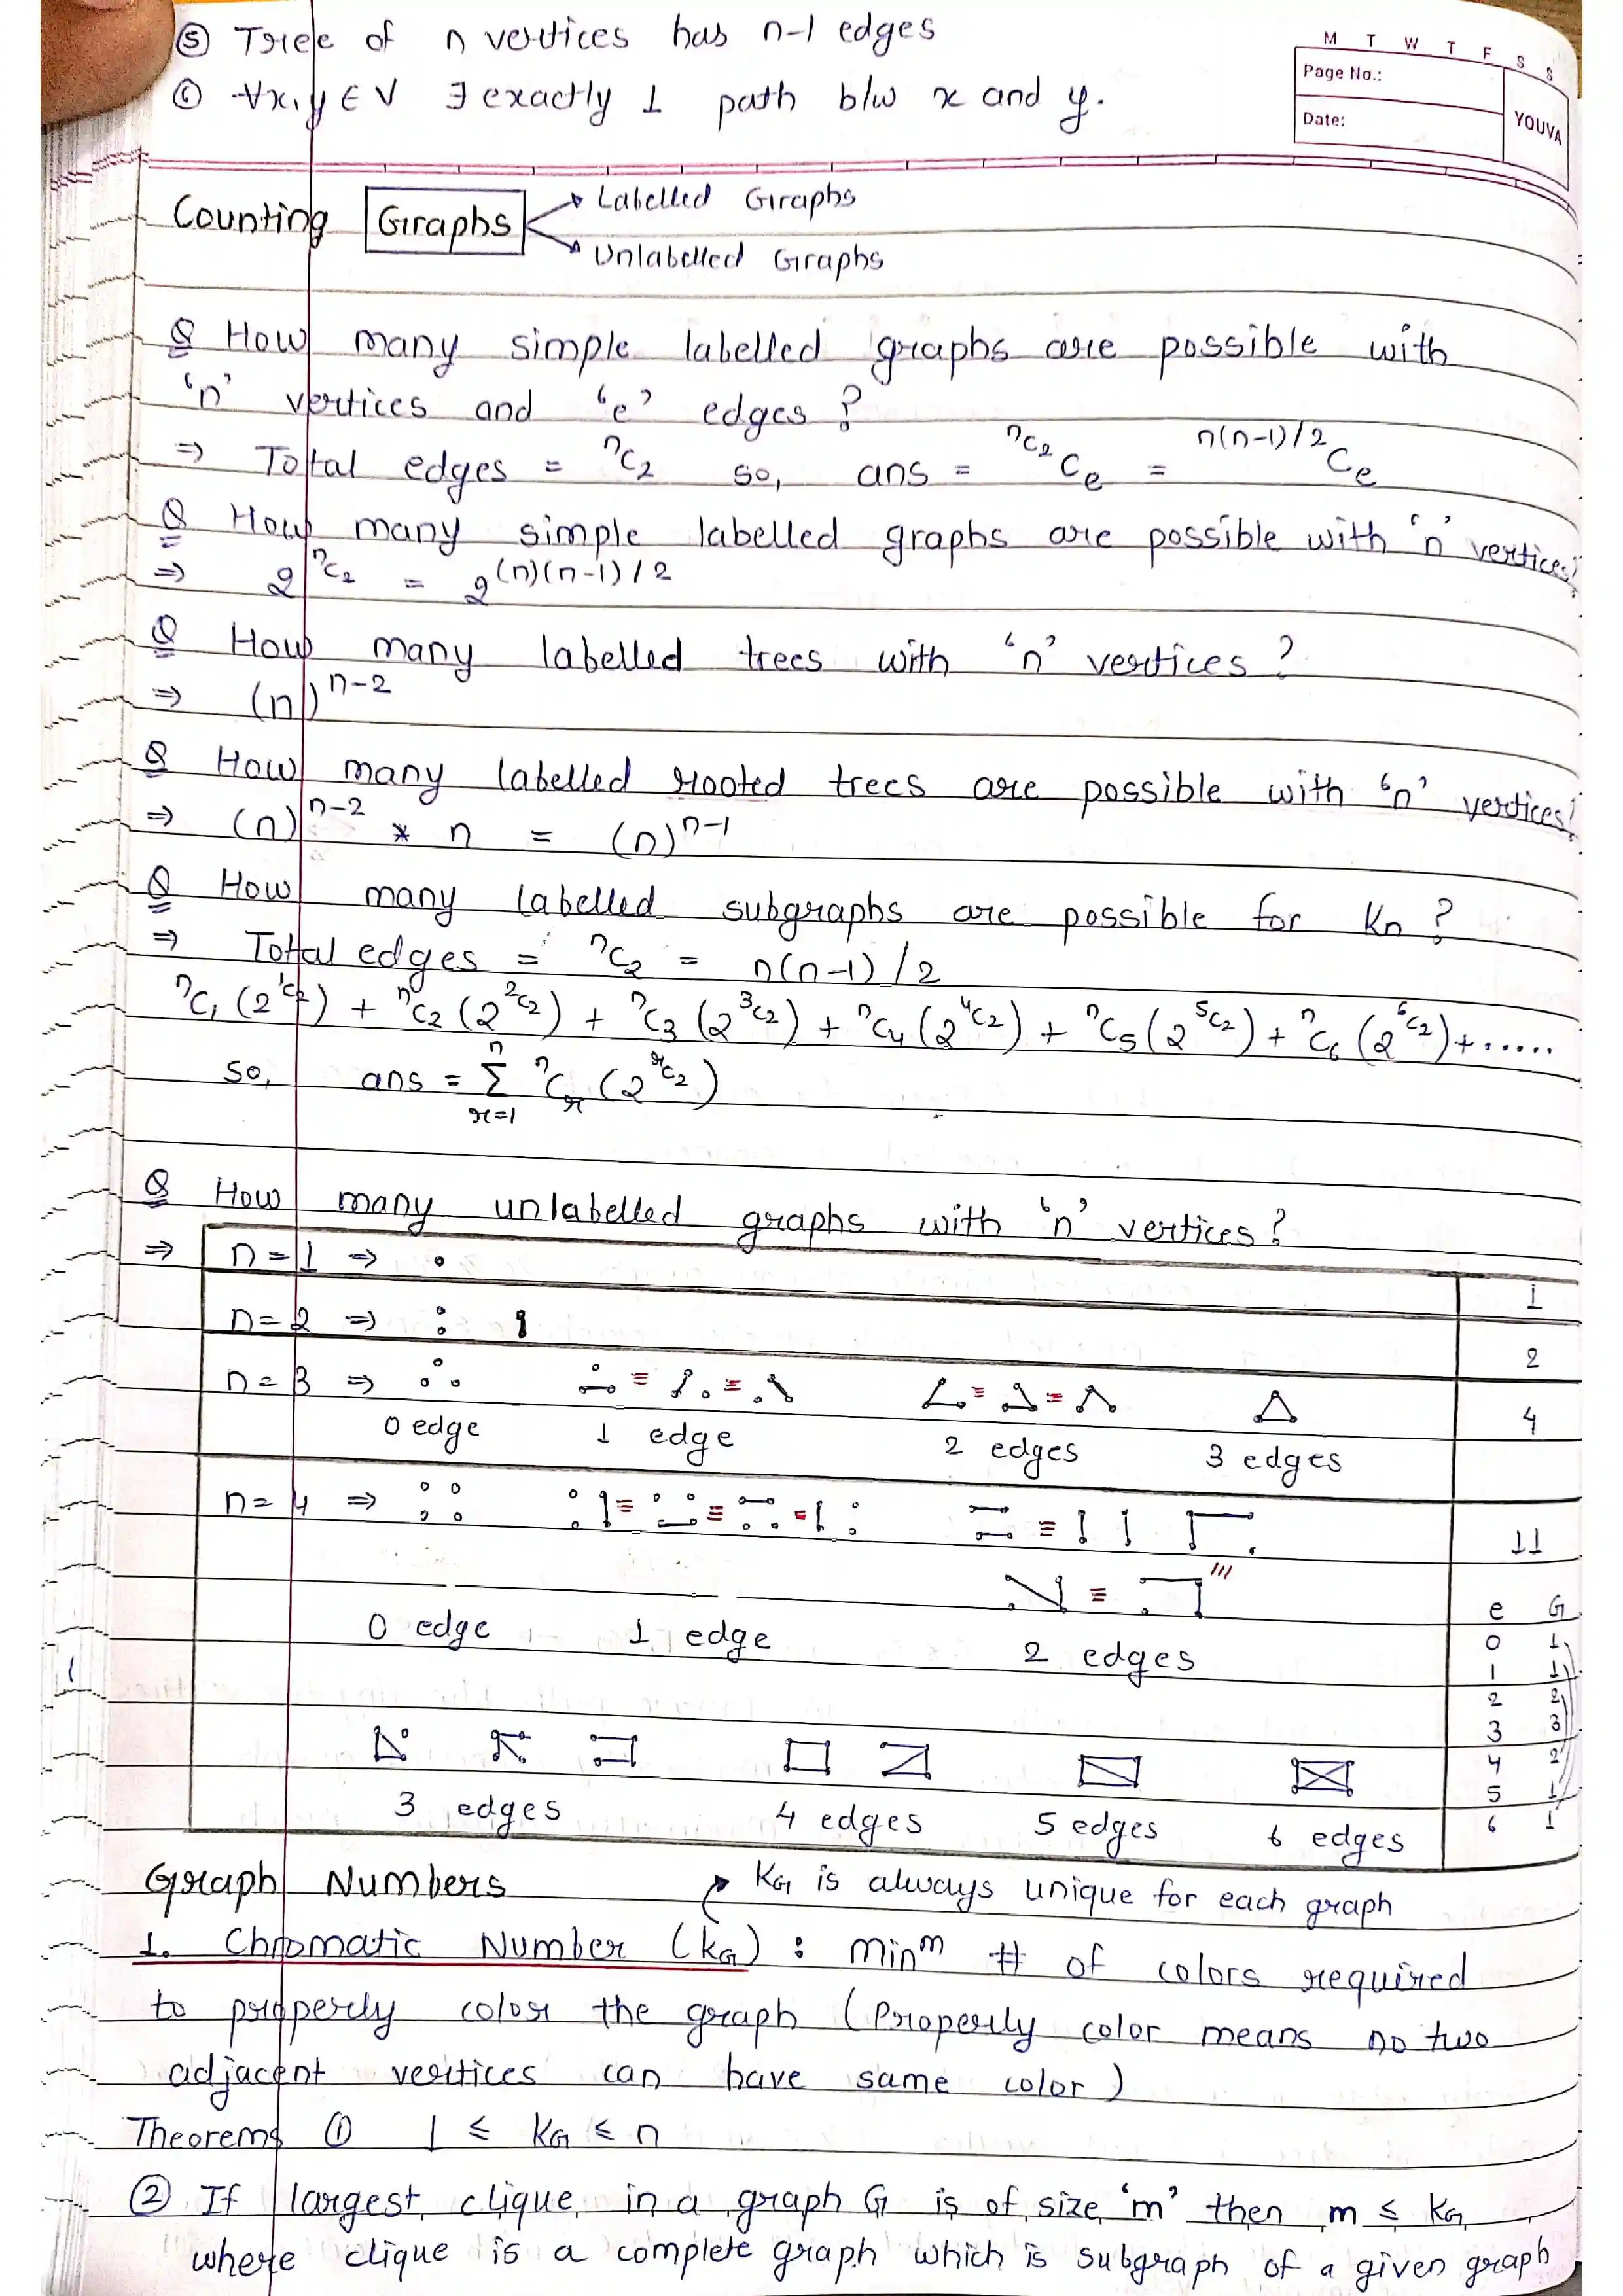 ⑤ Tree of n vertices has n-1 edges
⑥ ∀x,y ∈ V ∃ exactly 1 path b/w x and y.
M T W T F S S
Page No.:
Date:
YOUVA
Counting Graphs → Labelled Graphs
→ Unlabelled Graphs
Q How many simple labelled graphs are possible with
'n' vertices and 'e' edges?
⇒ Total edges = ⁿC₂ so, ans = ⁿC₂Cₑ = n(n-1)/2Cₑ
Q How many simple labelled graphs are possible with 'n' vertices?
⇒ 2^ⁿC₂ = 2^(n)(n-1)/2
Q How many labelled trees with 'n' vertices?
⇒ (n)^n-2
Q How many labelled rooted trees are possible with 'n' vertices?
⇒ (n)^n-2 * n = (n)^n-1
Q How many labelled subgraphs are possible for Kn?
⇒ Total edges = ⁿC₂ = n(n-1)/2
ⁿC₁(2^¹C₂) + ⁿC₂(2^²C₂) + ⁿC₃(2^³C₂) + ⁿC₄(2^⁴C₂) + ⁿC₅(2^⁵C₂) + ⁿC₆(2^⁶C₂)+.....
so, ans = Σ_{r=1}^{n} ⁿCᵣ(2^ʳC₂)
Q How many unlabelled graphs with 'n' vertices?
⇒ n=1 ⇒ 1
n=2 ⇒ 2
n=3 ⇒ ≡ = ≡ = 4
0 edge 1 edge 2 edges 3 edges
n=4 ⇒ ≡ ≡ = ≡ 11
≡
0 edge 1 edge 2 edges
e G
0 1
1 1
2 2
3 3
4 2
5 1
6 1
3 edges 4 edges 5 edges 6 edges
Graph Numbers → KG is always unique for each graph
1. Chromatic Number (KG) : minᵐ # of colors required
to properly color the graph (Properly color means no two
adjacent vertices can have same color)
Theorems ① 1 ≤ KG ≤ n
② If largest clique in a graph G is of size 'm' then m ≤ KG
where clique is a complete graph which is subgraph of a given graph